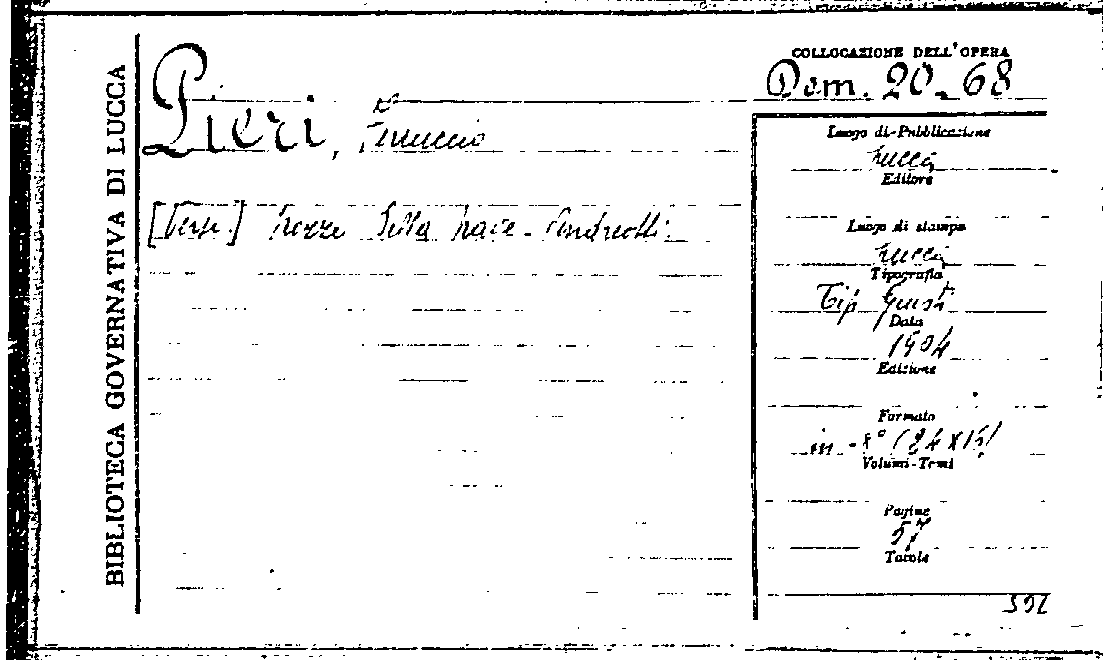 BIBLIOTECA GOVERNATIVA DI LUCCA
COLLOCAZIONE DELL'OPERA
Dom. 20-68
Pieri, Ferruccio
[Versi.] Nozze Della Nace - Andreotti.
Luogo di Pubblicazione
Lucca
Editore
Luogo di stampa
Lucca
Tipografia
Tip Giusti
Data
1904
Edizione
Formato
in-8° (24x15)
Volumi-Tomi
Pagine
57
Tavole